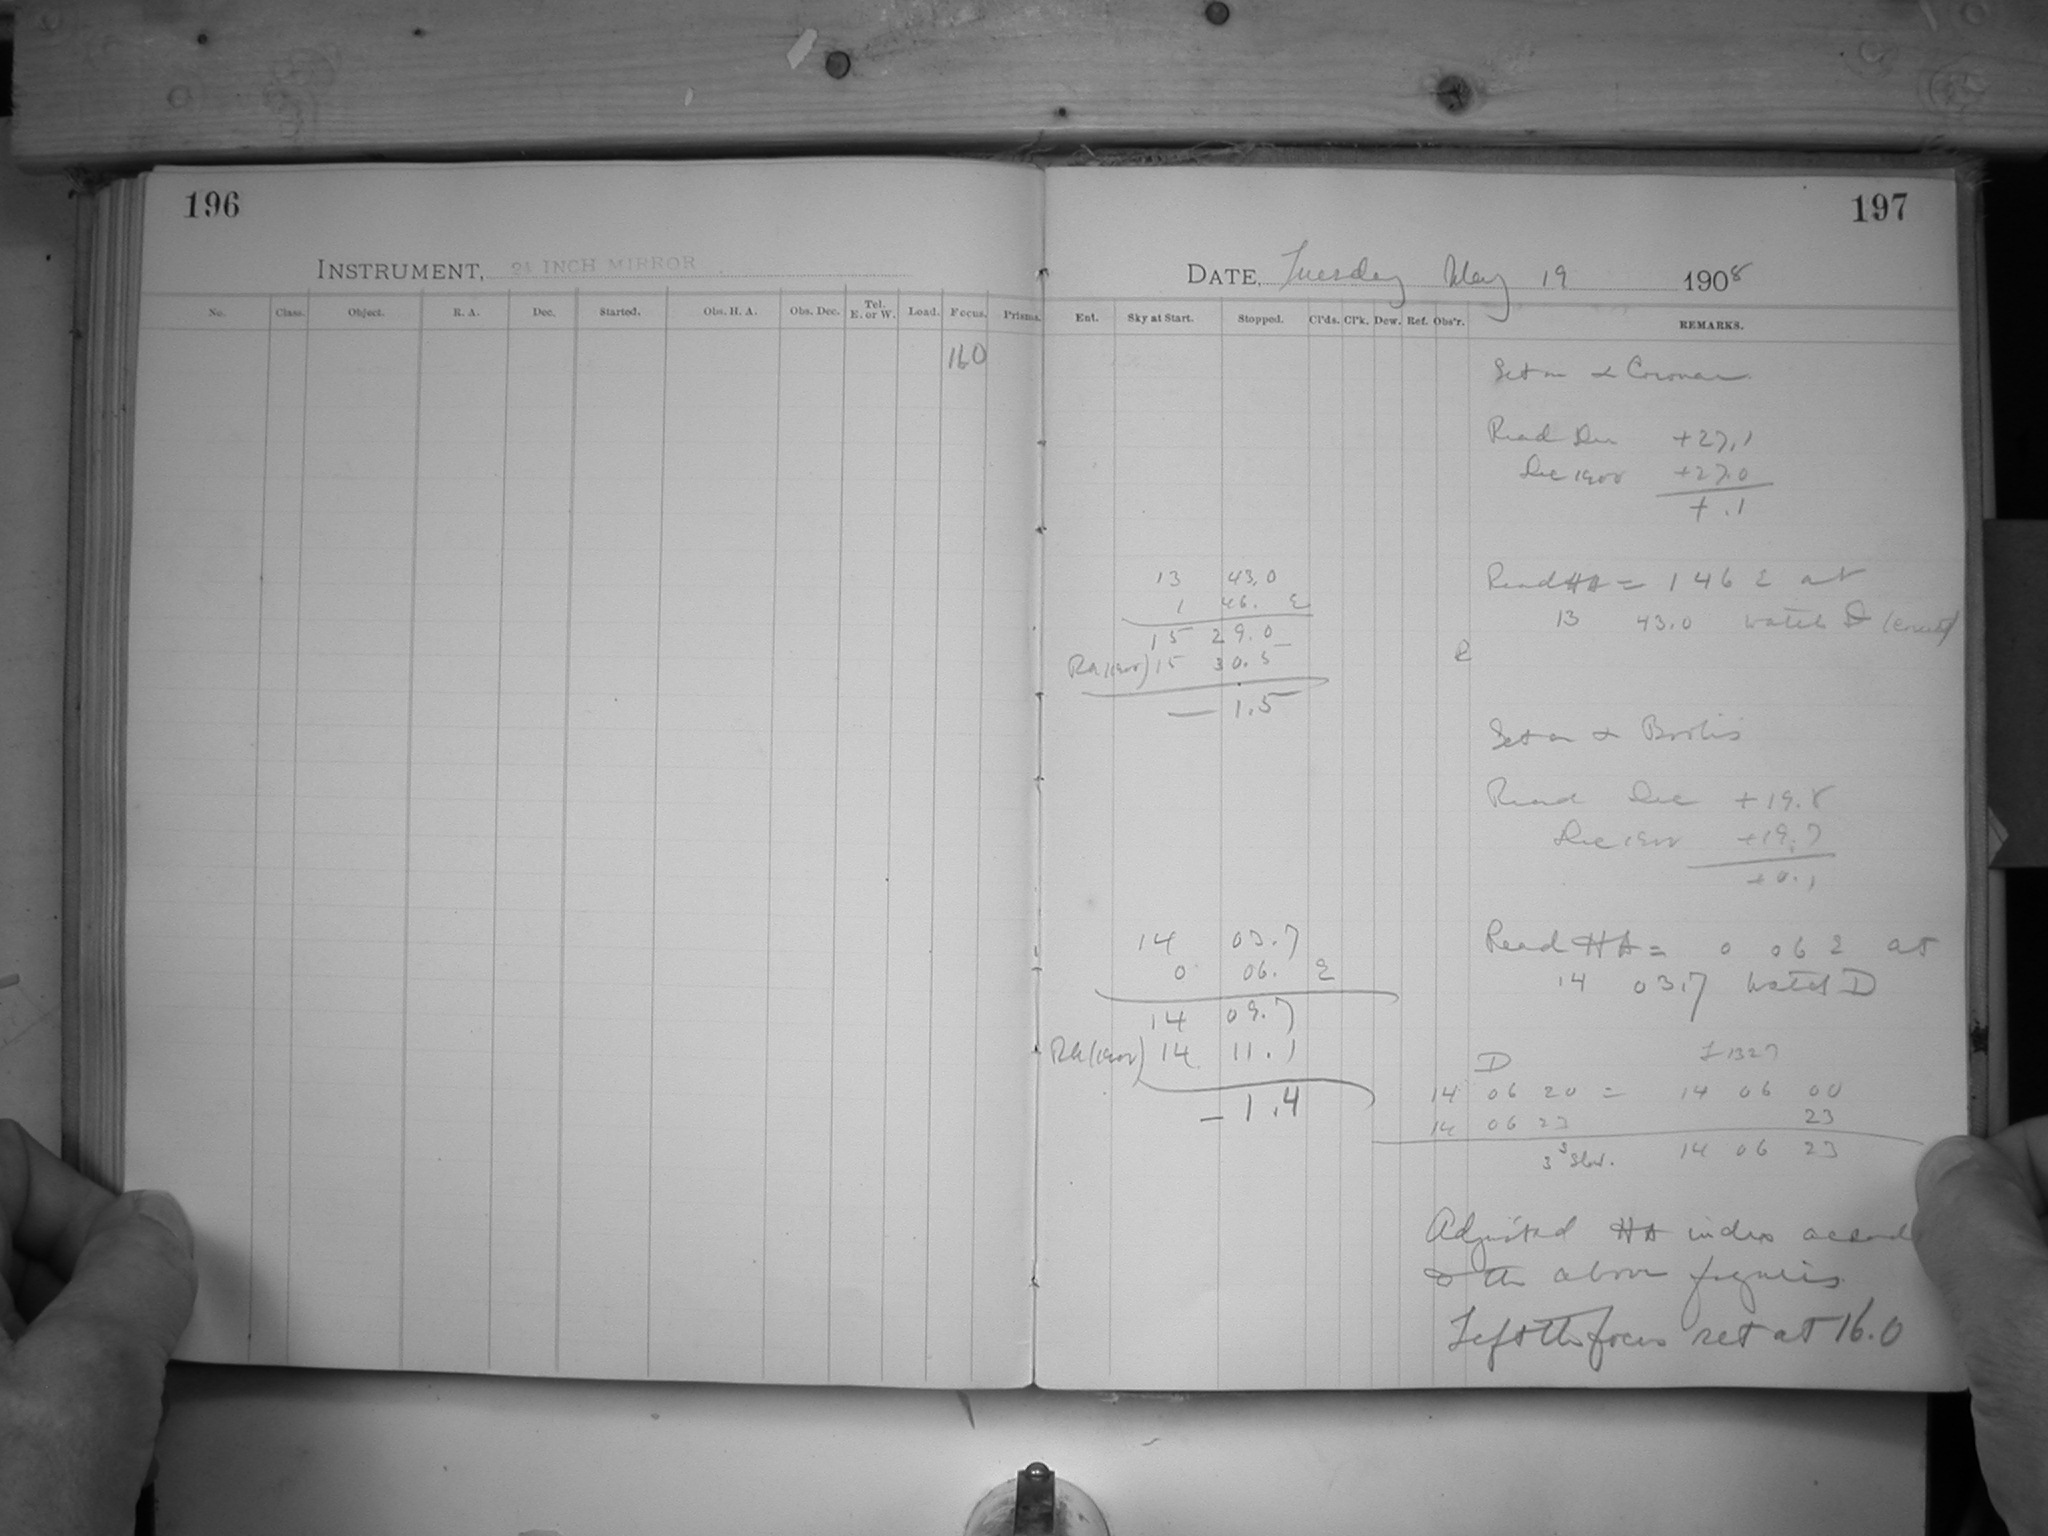 196
INSTRUMENT, 24 INCH MIRROR
No. Class. Object. R. A. Dec. Started. Obs. H. A. Obs. Dec. Tel. E. or W. Load. Focus. Prisms.
160
197
DATE, Tuesday May 19 1908
Ent. Sky at Start. Stopped. Cl'ds. Cl'k. Dew. Ref. Obs'r. REMARKS.
Set on α Coronae
Read Dec +27.1
Dec 1900 +27.0
+ .1
13 43.0
1 46. E
15 29.0
RA (1900) 15 30.5
— 1.5
Read HA = 1 46 E at
13 43.0 Watch D
R
Set on α Bootis
Read Dec +19.8
Dec 1900 +19.7
+0.1
14 03.7
0 06. E
14 09.7
RA (1900) 14 11.1
— 1.4
Read HA = 0 06 E at
14 03.7 Watch D
D 1327
14 06 20 = 14 06 00
14 06 23 23
3 s Slow. 14 06 23
Adjusted HA index
to the above figures
Left the focus set at 16.0